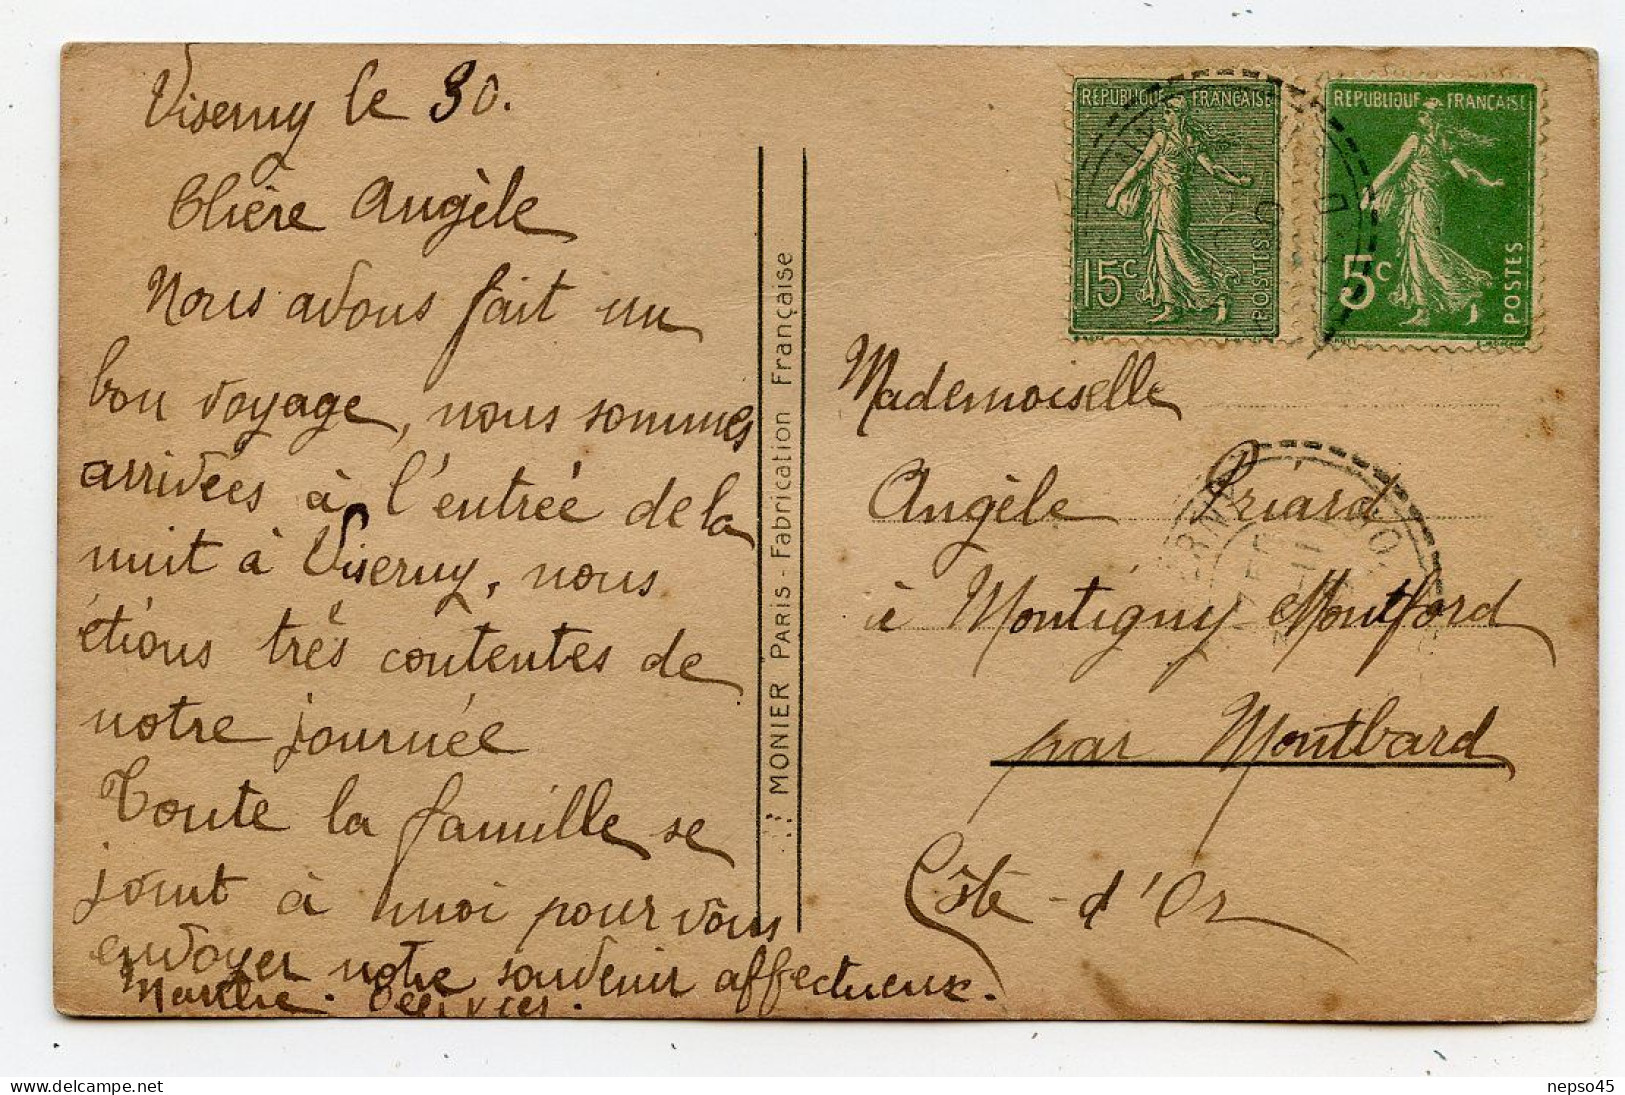 Viserny le 30.
Chère Angèle
Nous avons fait un
bon voyage, nous sommes
arrivées à l'entrée de la
nuit à Viserny, nous
étions très contentes de
notre journée
Toute la famille se
joint à moi pour vous
envoyer notre souvenir affectueux.
Marthe.
MONIER PARIS - Fabrication Française
REPUBLIQUE FRANÇAISE
15c
POSTES
REPUBLIQUE FRANÇAISE
5c
POSTES
Mademoiselle
Angèle Priard
à Montigny-Montford
par Montbard
Côte-d'Or
nepso45